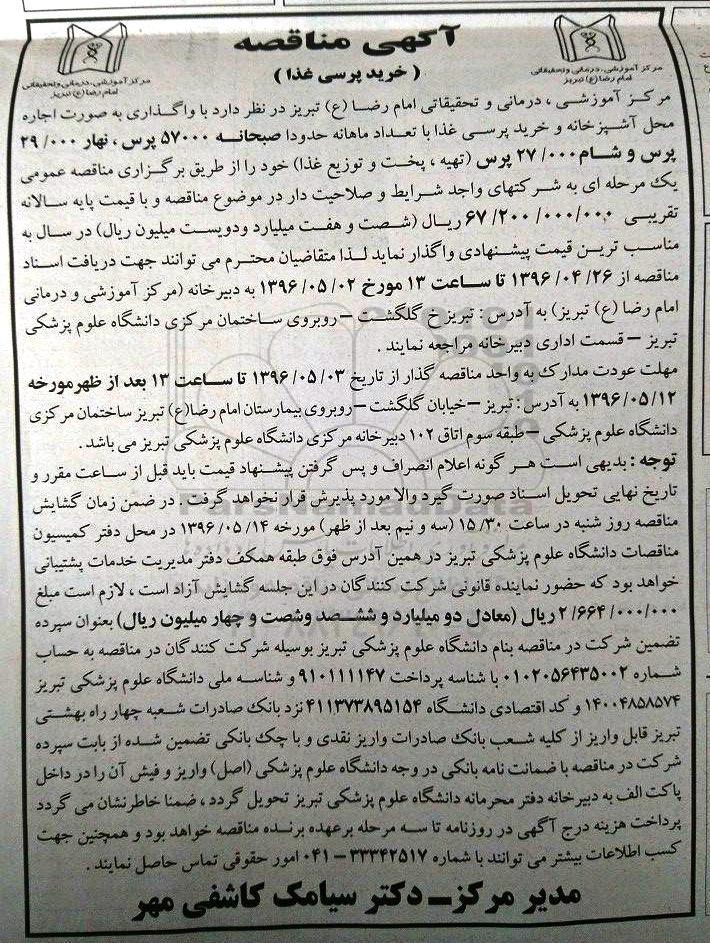 آگهی مناقصه
( خرید پرسی غذا )
مرکز آموزشی، درمانی و تحقیقاتی
امام رضا (ع) تبریز
مرکز آموزشی، درمانی و تحقیقاتی
امام رضا (ع) تبریز
مرکز آموزشی ، درمانی و تحقیقاتی امام رضا (ع) تبریز در نظر دارد با واگذاری به صورت اجاره
محل آشپزخانه و خرید پرسی غذا با تعداد ماهانه حدودا صبحانه ۵۷۰۰۰ پرس ، نهار ۲۹/۰۰۰
پرس و شام ۲۷/۰۰۰ پرس (تهیه ، پخت و توزیع غذا) خود را از طریق برگزاری مناقصه عمومی
یک مرحله ای به شرکتهای واجد شرایط و صلاحیت دار در موضوع مناقصه و با قیمت پایه سالانه
تقریبی ۶۷/۲۰۰/۰۰۰/۰۰۰ ریال (شصت و هفت میلیارد ودویست میلیون ریال) در سال به
مناسب ترین قیمت پیشنهادی واگذار نماید لذا متقاضیان محترم می توانند جهت دریافت اسناد
مناقصه از ۱۳۹۶/۰۴/۲۶ تا ساعت ۱۳ مورخ ۱۳۹۶/۰۵/۰۲ به دبیرخانه (مرکز آموزشی و درمانی
امام رضا (ع) تبریز) به آدرس : تبریز خ گلگشت – روبروی ساختمان مرکزی دانشگاه علوم پزشکی
تبریز – قسمت اداری دبیرخانه مراجعه نمایند .
مهلت عودت مدارک به واحد مناقصه گذار از تاریخ ۱۳۹۶/۰۵/۰۳ تا ساعت ۱۳ بعد از ظهرمورخه
۱۳۹۶/۰۵/۱۲ به آدرس : تبریز – خیابان گلگشت – روبروی بیمارستان امام رضا(ع) تبریز ساختمان مرکزی
دانشگاه علوم پزشکی – طبقه سوم اتاق ۱۰۲ دبیرخانه مرکزی دانشگاه علوم پزشکی تبریز می باشد.
توجه : بدیهی است هر گونه اعلام انصراف و پس گرفتن پیشنهاد قیمت باید قبل از ساعت مقرر و
تاریخ نهایی تحویل اسناد صورت گیرد والا مورد پذیرش قرار نخواهد گرفت در ضمن زمان گشایش
مناقصه روز شنبه در ساعت ۱۵/۳۰ (سه و نیم بعد از ظهر) مورخه ۱۳۹۶/۰۵/۱۴ در محل دفتر کمیسیون
مناقصات دانشگاه علوم پزشکی تبریز در همین آدرس فوق طبقه همکف دفتر مدیریت خدمات پشتیبانی
خواهد بود که حضور نماینده قانونی شرکت کنندگان در این جلسه گشایش آزاد است ، لازم است مبلغ
۲/۶۶۴/۰۰۰/۰۰۰ ریال (معادل دو میلیارد و ششصد وشصت و چهار میلیون ریال) بعنوان سپرده
تضمین شرکت در مناقصه بنام دانشگاه علوم پزشکی تبریز بوسیله شرکت کنندگان در مناقصه به حساب
شماره ۰۱۰۲۰۵۶۴۳۵۰۰۲ با شناسه پرداخت ۹۱۰۱۱۱۱۴۷ و شناسه ملی دانشگاه علوم پزشکی تبریز
۱۴۰۰۴۸۵۸۵۷۴ و کد اقتصادی دانشگاه ۴۱۱۳۷۳۸۹۵۱۵۴ نزد بانک صادرات شعبه چهار راه بهشتی
تبریز قابل واریز از کلیه شعب بانک صادرات واریز نقدی و با چک بانکی تضمین شده از بابت سپرده
شرکت در مناقصه با ضمانت نامه بانکی در وجه دانشگاه علوم پزشکی (اصل) واریز و فیش آن را در داخل
پاکت الف به دبیرخانه دفتر محرمانه دانشگاه علوم پزشکی تبریز تحویل گردد ، ضمنا خاطرنشان می گردد
پرداخت هزینه درج آگهی در روزنامه تا سه مرحله برعهده برنده مناقصه خواهد بود و همچنین جهت
کسب اطلاعات بیشتر می توانند با شماره ۳۳۳۴۲۵۱۷ – ۰۴۱ امور حقوقی تماس حاصل نمایند .
مدیر مرکز – دکتر سیامک کاشفی مهر
ParsNamadData